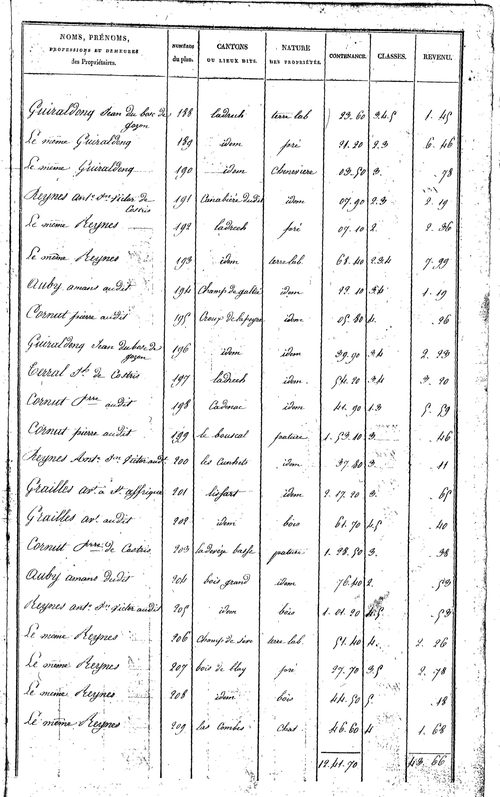 NOMS, PRÉNOMS, PROFESSIONS ET DEMEURES des Propriétaires. | NUMÉROS du plan. | CANTONS OU LIEUX DITS. | NATURE DES PROPRIÉTÉS. | CONTENANCE. | CLASSES. | REVENU.
Guiraldong Jean du bosc de gozon 188 ladrech terre lab 23.60 3.4.5 1.45
Le même Guiraldong 189 idem pré 21.20 2.3 6.46
Le même Guiraldong 190 idem Cheneviere 03.50 3 .78
Reynes ant.e S.t Victor de Costris 191 Canabière dudit idem 07.90 2.3 2.19
Le même Reynes 192 ladrech pré 07.10 2. 2.36
Le même Reynes 193 idem terre lab. 68.40 2.3.4 7.99
Auby amans audit 194 Champ de idem 22.10 3.4 1.19
Cornut pierre audit 195 Croux de lapeyre idem 05.80 4. .26
Guiraldong Jean du bosc de gozon 196 idem idem 39.90 3.4 2.23
Terral de Costris 197 ladrech idem 54.20 3.4 3.20
Cornut p.rre audit 198 Cadenac idem 41.90 1.3 5.59
Cornut pierre audit 199 le bouscal pature 1.53.10 3. .46
Reynes Ant.e S.t Victor aud.t 200 les idem 37.80 3. .11
Grailles av.t à S.t affrique 201 idem 2.17.20 3. .65
Grailles av.t audit 202 idem bois 61.70 4.5 .40
Cornut p.rre de Costris 203 ladevèze basse pature 1.28.50 3. .38
Auby amans dudit 204 bois grand idem 76.40 2. .53
Reynes ant.e S.t Victor audit 205 idem bois 1.01.20 4.5 .53
Le même Reynes 206 Champ de terre lab. 51.40 4. 2.26
Le même Reynes 207 bois de pré 27.70 3.5 2.78
Le même Reynes 208 idem bois 44.50 5. .18
Le même Reynes 209 las Combes Chat. 46.60 4 1.68
12.41.70 43.66